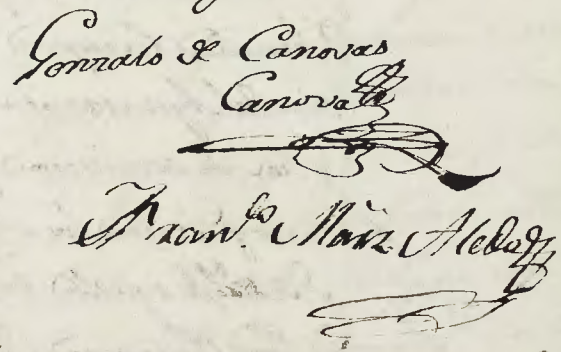 Gonzalo de Canovas
Canovas
Fran.co Mărz Aledo